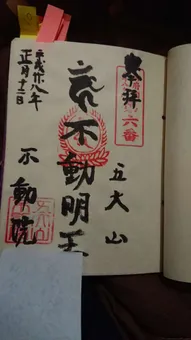 奉拝
六番
五大山
不動明王
平成廿八年
正月十二日
不動院